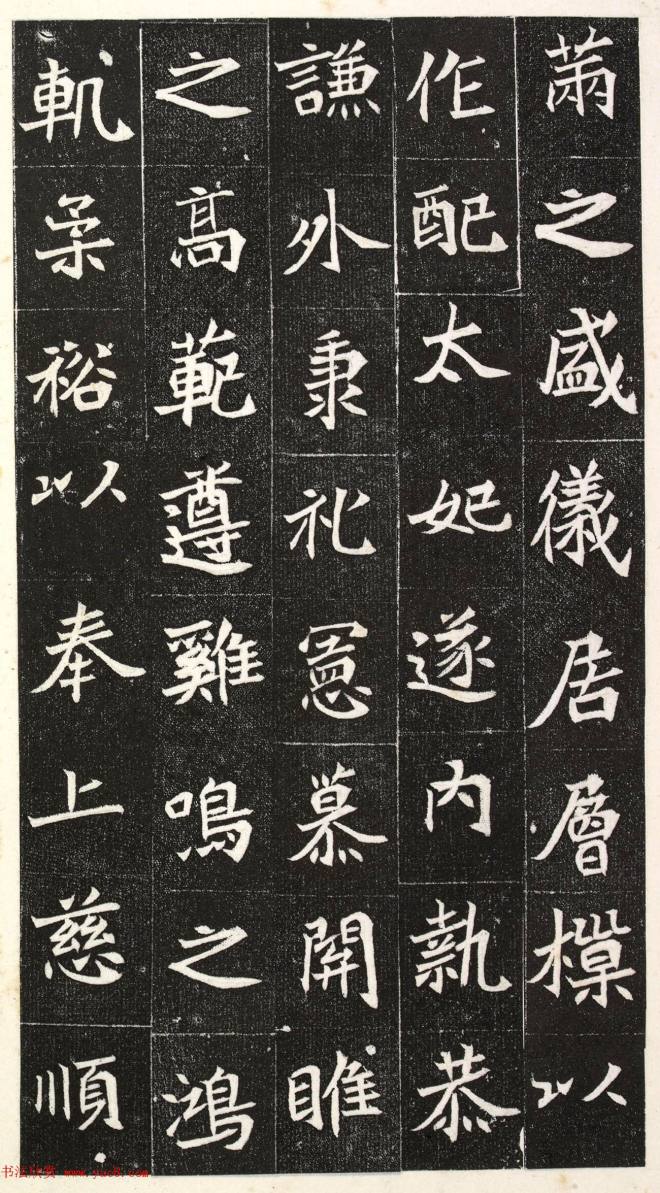 萳之盛儀居層櫱以
作配太妃遂內執恭
謙外秉礼憲慕開睢
之高範遵雞鳴之鴻
軌柔裕以奉上慈順
书法欣赏 www.yac8.com